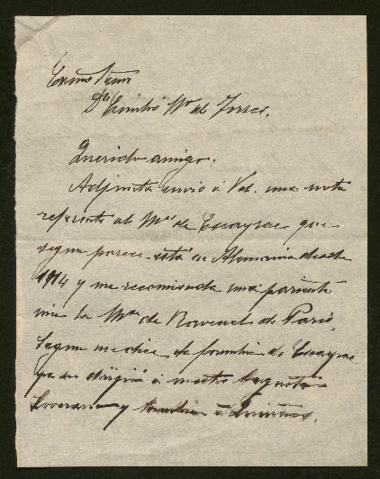 Excmo Señor
Dn Emilio Mª de Torres.
Querido amigo:
Adjunta envio á Vd. una nota
referente al Ms de Escayrac que
segun parece está en Alemania desde
1914 y me recomienda una parienta
mia la Msa de Ravenel de Paris.
Segun me dice la familia de Escayrac
ya se dirigió á nuestro Augusto
Soberano y tambien á Quiñones.